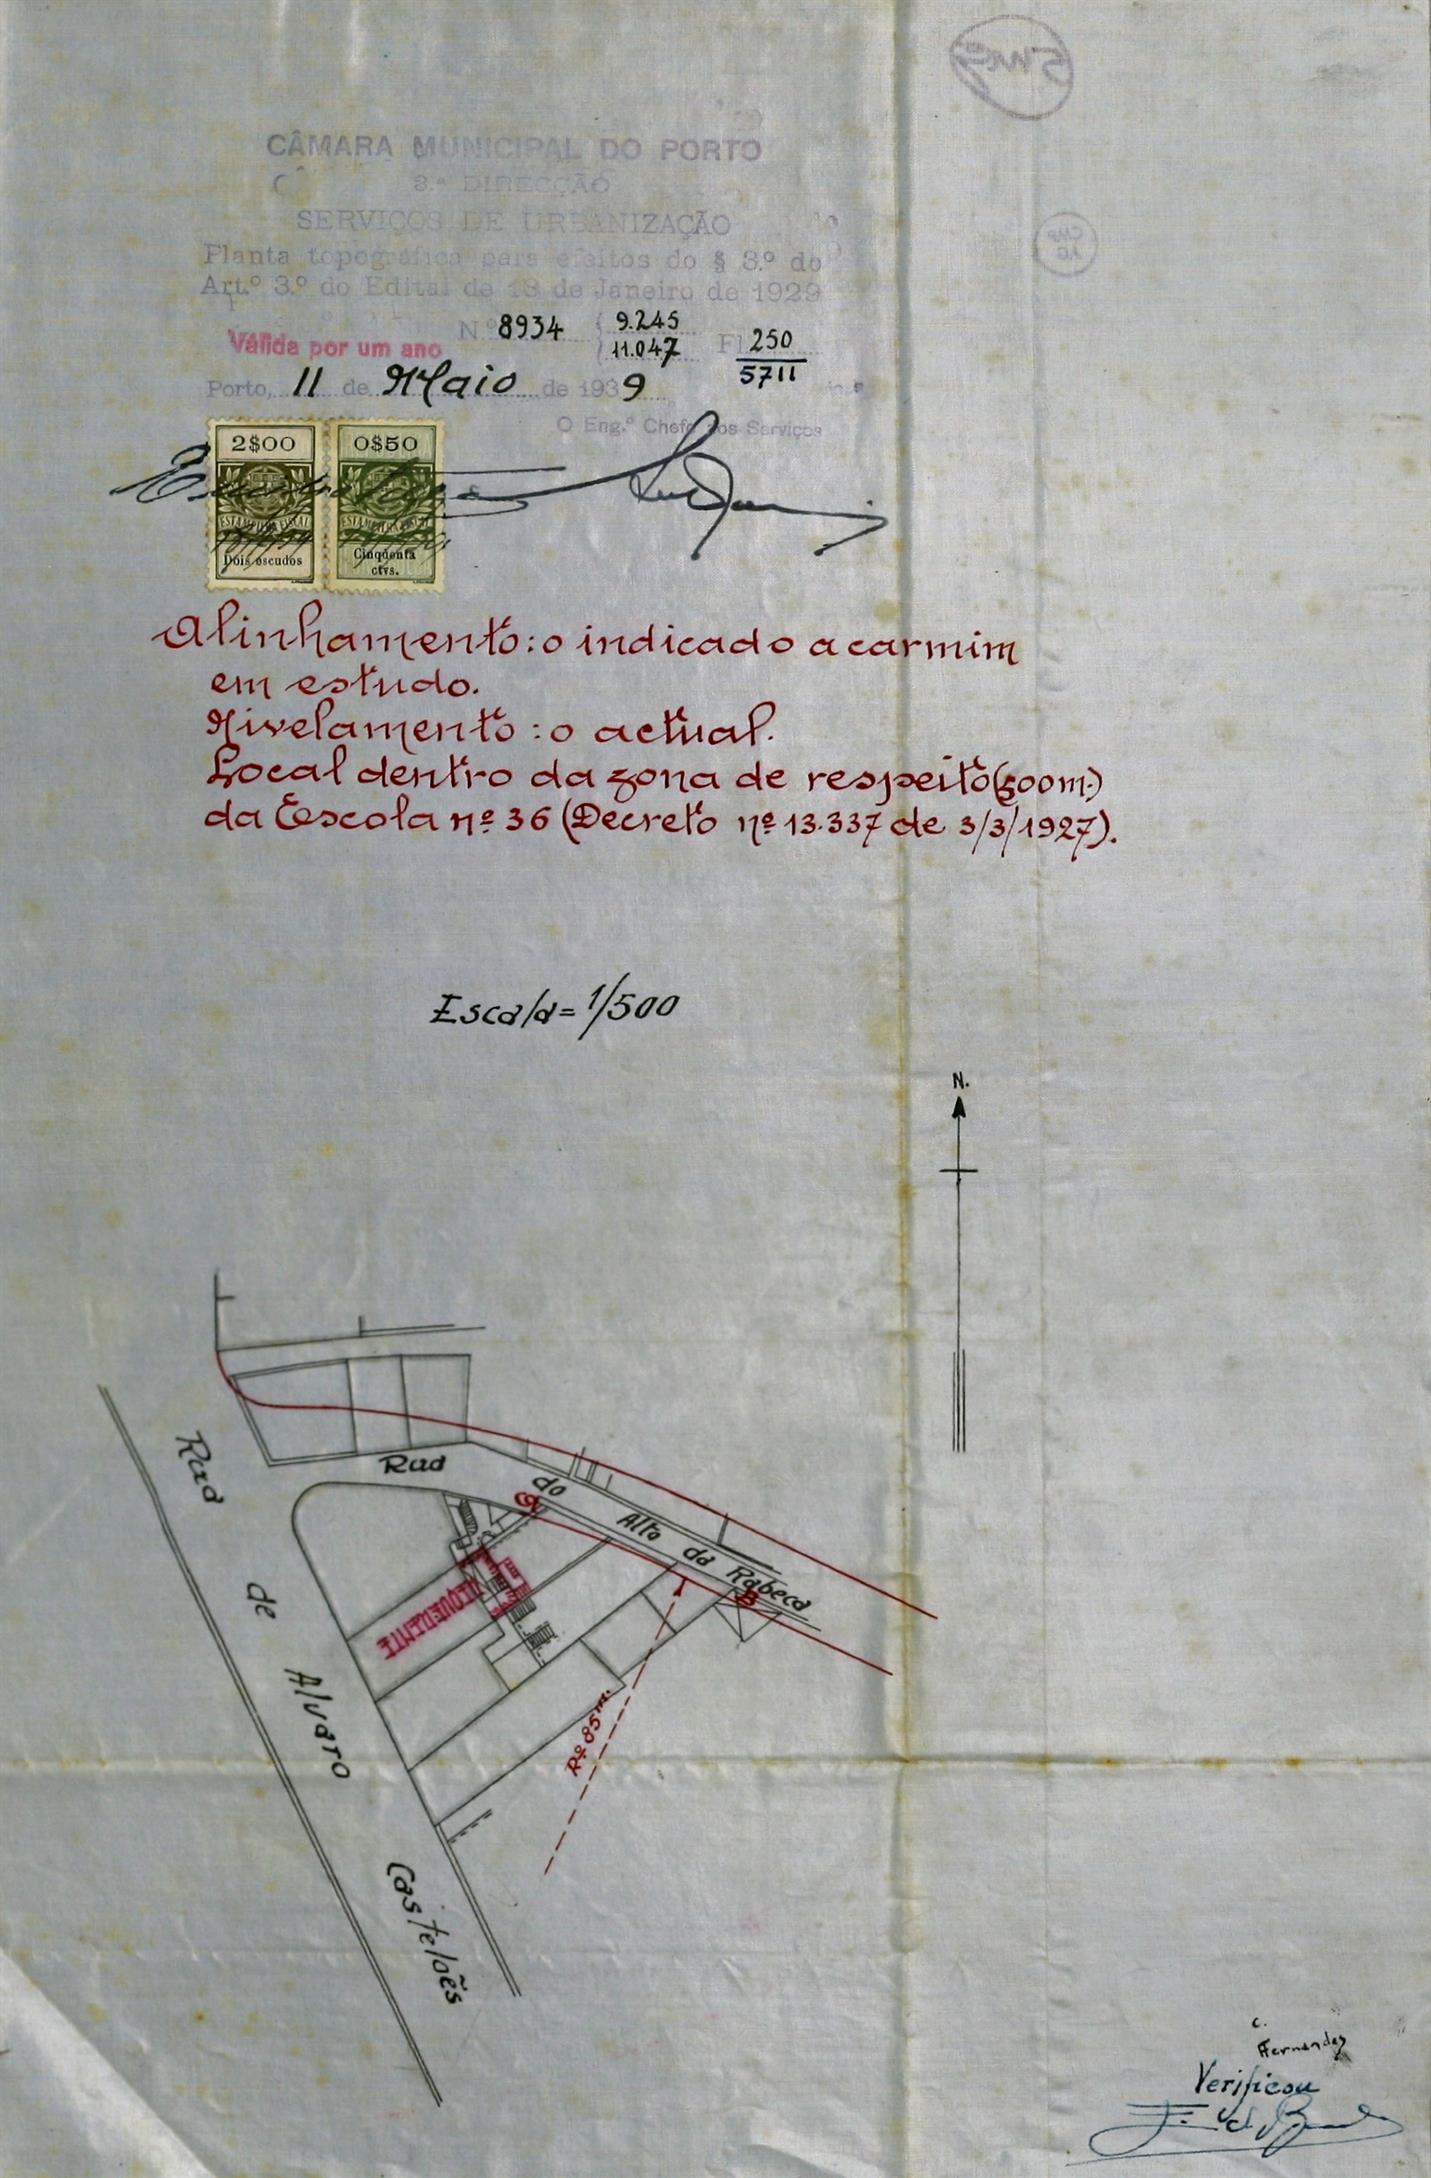 CÂMARA MUNICIPAL DO PORTO
3.ª DIRECÇÃO
SERVIÇOS DE URBANIZAÇÃO
Planta topográfica para efeitos do § 3.º do
Art.º 3.º do Edital de 18 de Janeiro de 1929
N.º 8934 9.245 Fl 250
Válida por um ano 11.047 5711
Porto, 11 de Maio de 1939
O Eng.º Chefe dos Serviços
2$00 0$50
ESTAMPILHA FISCAL ESTAMPILHA FISCAL
Dois escudos Cinqùenta
ctvs.
Alinhamento: o indicado a carmim
em estudo.
Nivelamento: o actual.
Local dentro da zona de respeito (500m.)
da Escola nº 36 (Decreto nº 13.337 de 3/3/1927).
Escala = 1/500
N.
Rua do Alto da Rabeca
B
REQUERENTE
Rº 85m.
Rua de Alvaro Castelões
C.
Fernandes
Verificou